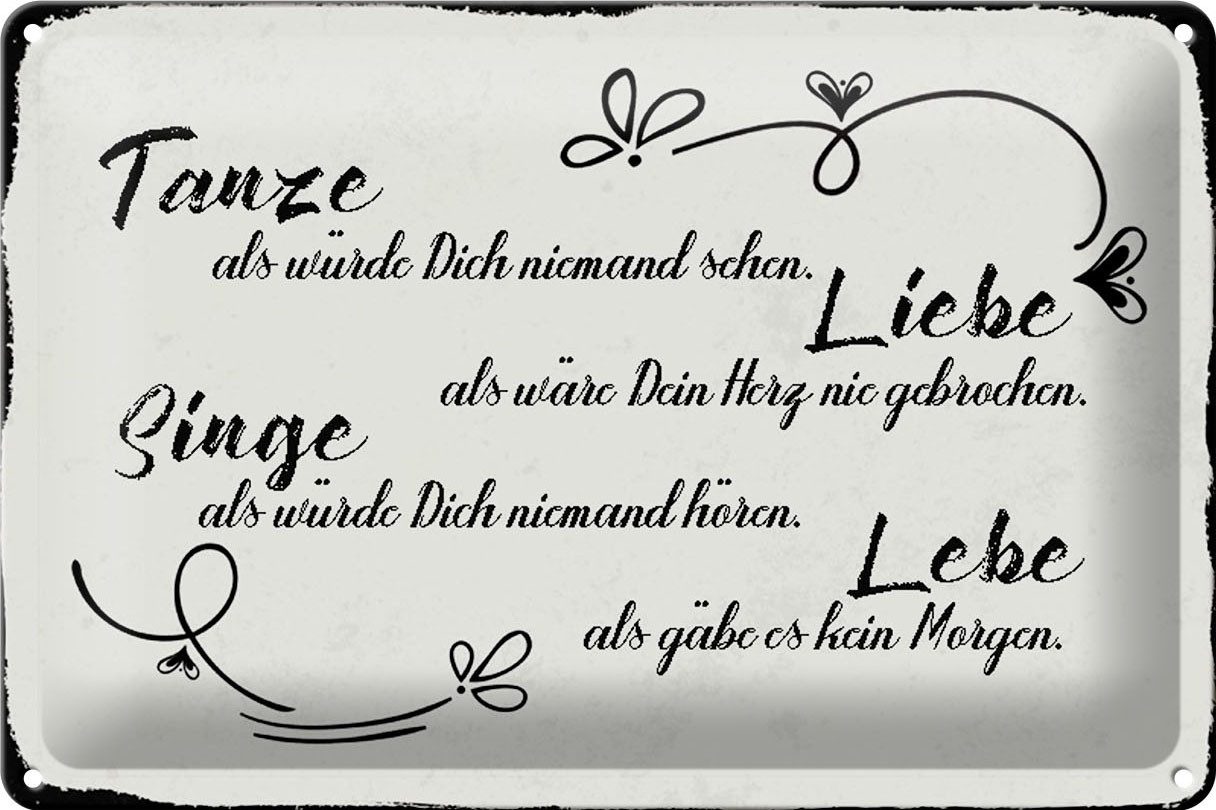 Tanze
als würde Dich niemand sehen.
Liebe
als wäre Dein Herz nie gebrochen.
Singe
als würde Dich niemand hören.
Lebe
als gäbe es kein Morgen.